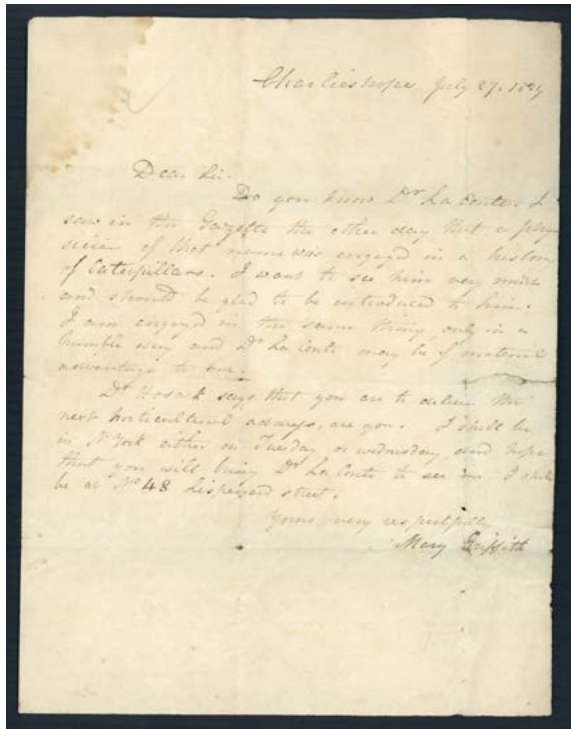 Charlieshope July 27. 1829
Dear Sir.
Do you know Dr La Conte. I
saw in the Gazette the other day that a phy
sician of that name was engaged in a history
of Caterpillars. I want to see him very much
and should be glad to be introduced to him.
I am engaged in the same thing, only in a
humble way and Dr La Conte may be of material
advantage to me.
Dr Hosack says that you are to deliver the
next horticultural address, are you. I shall be
in N York either on Tuesday or wednesday, and hope
that you will bring Dr La Conte to see me I shall
be at No 48 Lispenard street.
Yours very respectfully
Mary Griffith